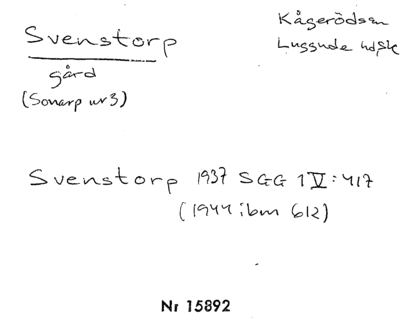 Svenstorp
gård
(Sonarp nr 3)
Kågeröds sn
Luggude hd, Sk
Svenstorp 1937 SGG 1 IV:417
(1944 ibm 612)
Nr 15892